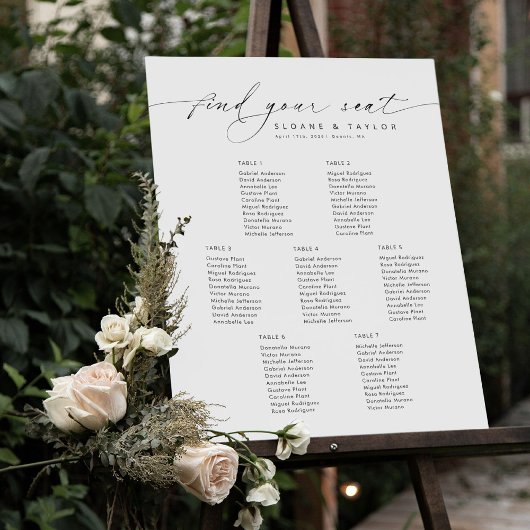 find your seat
SLOANE & TAYLOR
April 17th, 2026 | Dennis, MA
TABLE 1
Gabriel Anderson
David Anderson
Annabelle Lee
Gustave Plant
Caroline Plant
Miguel Rodriguez
Rosa Rodriguez
Donatella Murano
Victor Murano
Michelle Jefferson
TABLE 2
Miguel Rodriguez
Rosa Rodriguez
Donatella Murano
Victor Murano
Michelle Jefferson
Gabriel Anderson
David Anderson
Annabelle Lee
Gustave Plant
Caroline Plant
TABLE 3
Gustave Plant
Caroline Plant
Miguel Rodriguez
Rosa Rodriguez
Donatella Murano
Victor Murano
Michelle Jefferson
Gabriel Anderson
David Anderson
Annabelle Lee
TABLE 4
Gabriel Anderson
David Anderson
Annabelle Lee
Gustave Plant
Caroline Plant
Miguel Rodriguez
Rosa Rodriguez
Donatella Murano
Victor Murano
Michelle Jefferson
TABLE 5
Miguel Rodriguez
Rosa Rodriguez
Donatella Murano
Victor Murano
Michelle Jefferson
Gabriel Anderson
David Anderson
Annabelle Lee
Gustave Plant
Caroline Plant
TABLE 6
Donatella Murano
Victor Murano
Michelle Jefferson
Gabriel Anderson
David Anderson
Annabelle Lee
Gustave Plant
Caroline Plant
Miguel Rodriguez
Rosa Rodriguez
TABLE 7
Michelle Jefferson
Gabriel Anderson
David Anderson
Annabelle Lee
Gustave Plant
Caroline Plant
Miguel Rodriguez
Rosa Rodriguez
Donatella Murano
Victor Murano